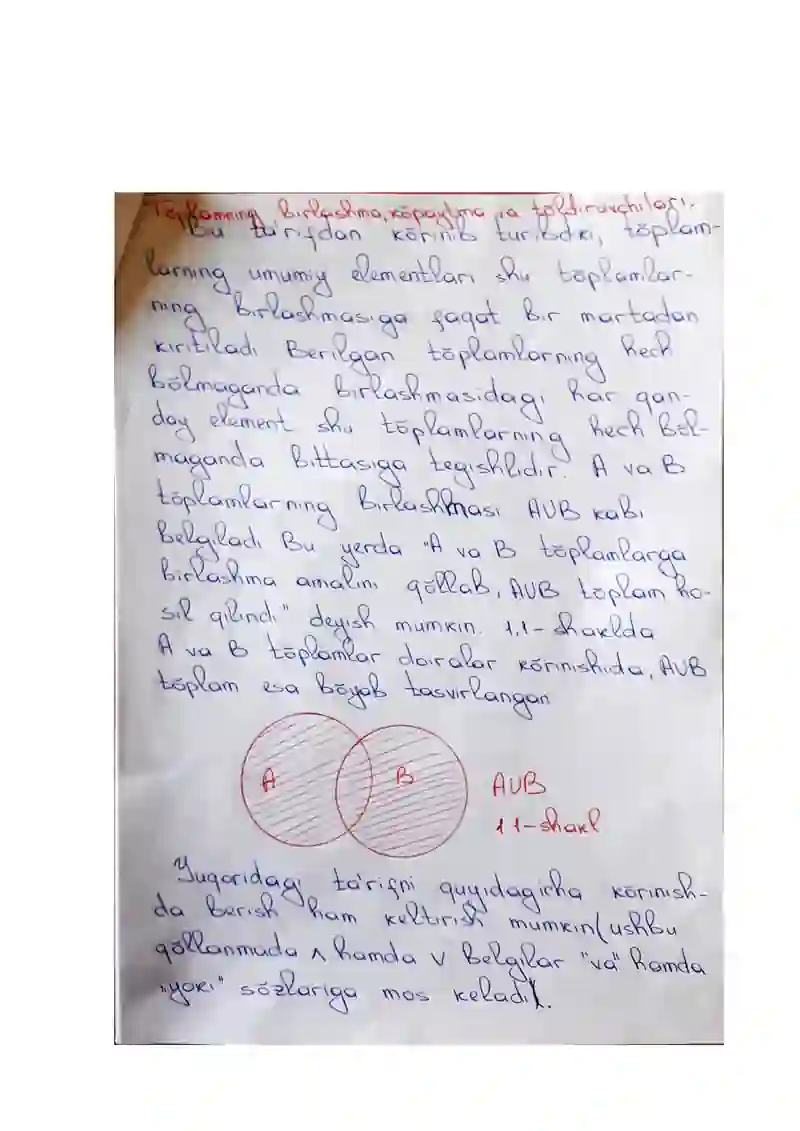 Toplamning birlashma, kōpaytma va tōldiruvchilari.
Bu ta'rifdan kōrinib turibdki, tōplam-
larning umumiy elementlari shu tōplamlar-
ning birlashmasiga faqat bir martadan
kiritiladi Berilgan tōplamlarning hech
bōlmaganda birlashmasidagi har qan-
day element shu tōplamlarning hech bōl-
maganda bittasiga tegishlidir. A va B
tōplamlarning birlashmasi AUB kabi
belgiladi Bu yerda "A va B tōplamlarga
birlashma amalini qōllab, AUB tōplam ho-
sil qilindi" deyish mumkin. 1.1-shaklda
A va B tōplamlar doiralar kōrinishida, AUB
tōplam esa bōyab tasvirlangan
A B AUB
1 1-shakl
Yuqoridagi ta'rifni quyidagicha kōrinish-
da berish ham keltirish mumkin (ushbu
qōllanmada ∧ hamda ∨ belgilar "va" hamda
"yoki" sōzlariga mos keladi).